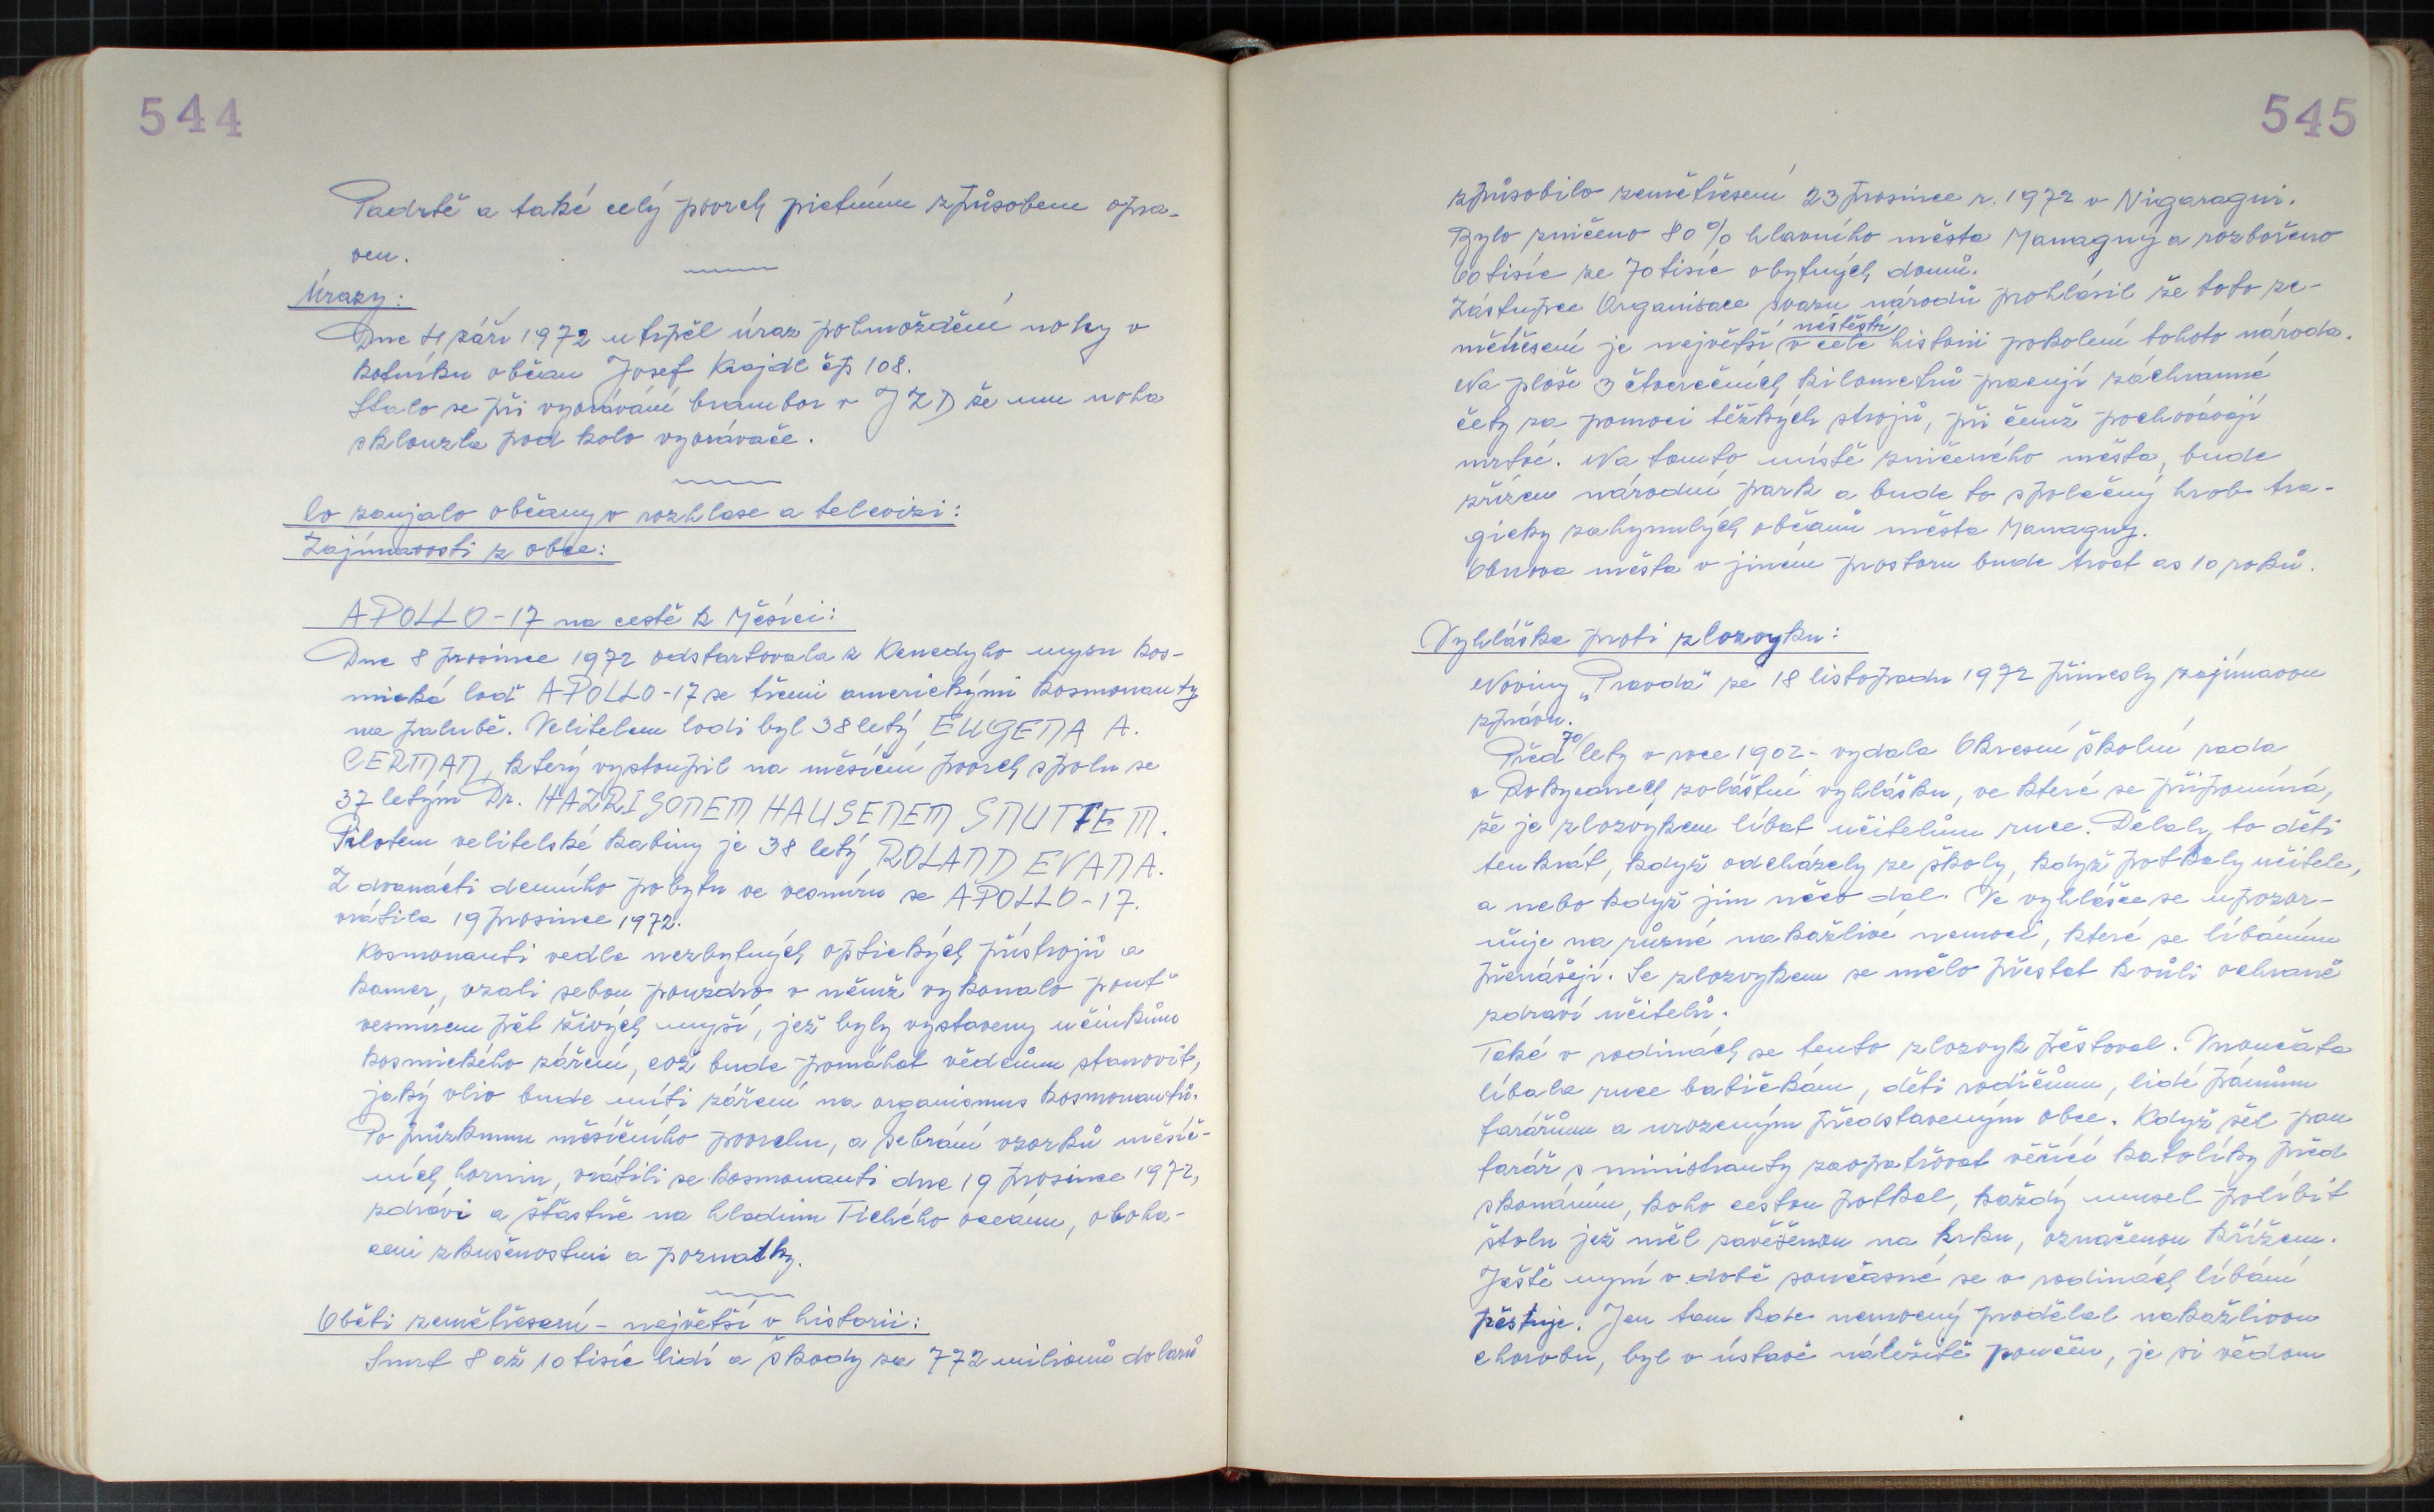 544
Padrtě a také celý povrch pietním způsobem opra-
ven.
Úrazy:
Dne 4 září 1972 utrpěl úraz pohmoždění nohy v
kotníku občan Josef Krajdl čp 108.
Stalo se při vyorávání brambor v JZD že mu noha
sklouzla pod kolo vyorávače.
Co zaujalo občany v rozhlase a televizi:
Zajímavosti z obce:
APOLLO-17 na cestě k Měsíci:
Dne 8 prosince 1972 odstartovala z Kenedyho mysu kos-
mická loď APOLLO-17 se třemi americkými kosmonauty
na palubě. Velitelem lodi byl 38letý EUGENA A.
CERNAN, který vystoupil na měsíční povrch spolu se
37 letým Dr. HARRISONEM HAUSENEM SNUTTEM.
Pilotem velitelské kabiny je 38 letý ROLAND EVANA.
Z dvanácti denního pobytu ve vesmíru se APOLLO-17.
vrátila 19 prosince 1972.
Kosmonauti vedle nezbytných optických přístrojů a
kamer, vzali sebou pouzdro v němž vykonalo pouť
vesmírem pět živých myší, jež byly vystaveny účinkům
kosmického záření, což bude pomáhat vědcům stanovit,
jaký vliv bude míti záření na organismus kosmonautů.
Po průzkumu měsíčního povrchu, a sebrání vzorků měsíč-
ních hornin, vrátili se kosmonauti dne 19 prosince 1972,
zdrávi a šťastně na hladinu Tichého oceánu, oboha-
ceni zkušenostmi a poznatky.
Oběti zemětřesení - největší v historii:
Smrt 8 až 10 tisíc lidí a škody za 772 milionů dolarů
545
způsobilo zemětřesení 23 prosince r. 1972 v Nigaragui.
Bylo zničeno 80% hlavního města Managuy a rozbořeno
60 tisíc ze 70 tisíc obytných domů.
Zástupce Organisace svazu národů prohlásil že toto ze-
neštěstí
mětřesení je největší v celé historii pokolení tohoto národa.
Na ploše 3 čtverečních kilometrů pracují záchranné
čety za pomoci těžkých strojů, při čemž pochovávají
mrtvé. Na tomto místě zničeného města, bude
zřízen národní park a bude to společný hrob tra-
gicky zahynulých občanů města Managuy.
Obnova města v jiném prostoru bude trvat as 10 roků.
Vyhláška proti zlozvyku:
Noviny „Pravda" ze 18 listopadu 1972 přinesly zajímavou
zprávu.
70
Před lety v roce 1902 - vydala Okresní školní rada
v Rokycanech zvláštní vyhlášku, ve které se připomíná,
že je zlozvykem líbat učitelům ruce. Dělaly to děti
tenkrát, když odcházely ze školy, když potkaly učitele,
a nebo když jim něco dal. Ve vyhlášce se upozor-
ňuje na různé nakažlivé nemoci, které se líbáním
přenášejí. Se zlozvykem se mělo přestat kvůli ochraně
zdraví učitelů.
Také v rodinách se tento zlozvyk pěstoval. Vnoučata
líbala ruce babičkám, děti rodičům, lidé pánům
farářům a urozeným představeným obce. Když šel pan
farář s ministranty zaopatřovat věřící katolíky před
skonáním, koho cestou potkal, každý musel políbit
štolu jež měl zavěšenou na krku, označenou křížem.
Ještě nyní v době současné se v rodinách líbání
pěstuje. Jen tam kde nemocný prodělal nakažlivou
chorobu, byl v ústavě náležitě poučen, je si vědom